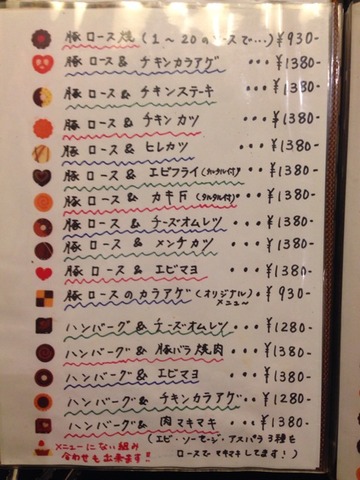 豚ロース焼(1~20のソースで…)¥930-
豚ロース&チキンカラアゲ・・・¥1380-
豚ロース&チキンステーキ・・・¥1380-
豚ロース&チキンカツ・・・¥1380-
豚ロース&ヒレカツ・・・¥1380-
豚ロース&エビフライ(タルタル付)・・・¥1380-
豚ロース&カキF(タルタル付)・・・¥1380-
豚ロース&チーズオムレツ・・・¥1380-
豚ロース&メンチカツ・・・¥1380-
豚ロース&エビマヨ・・・¥1380-
豚ロースのカラアゲ(オリジナルメニュー)・¥930-
ハンバーグ&チーズオムレツ・・・¥1280-
ハンバーグ&豚バラ焼肉・・・¥1380-
ハンバーグ&エビマヨ・・・¥1380-
ハンバーグ&チキンカラアゲ・・・¥1280-
ハンバーグ&肉マキマキ・・・¥1380-
(エビ・ソーセージ・アスパラ3種を
ロースでマキマキしてます!)
メニューにない組み
合わせも出来ます!!